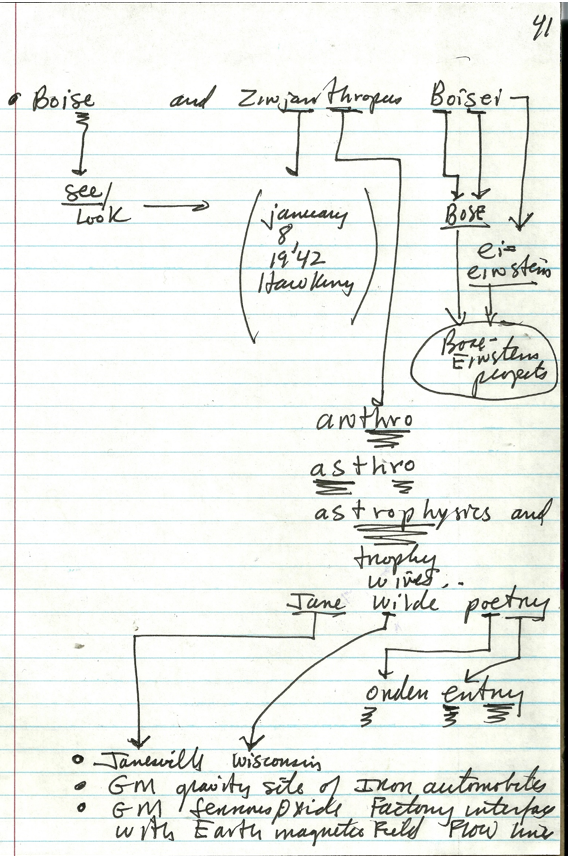 41
• Boise and Zinjanthropus Boisei
see/
Look
january
8
19'42
Hawking
Bose
ei=
einstein
Bose-
Einstein
projects
anthro
asthro
astrophysics and
trophy
wives..
Jane Wilde poetry
order entry
• Janesville Wisconsin
• GM gravity site of Iron automobiles
• GM ferrous oxide Factory interface
with Earth magnetic Field Flow lines